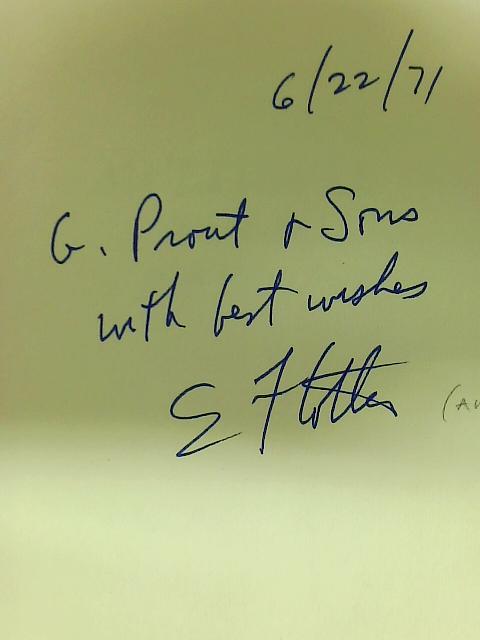 6/22/71
G. Prout & Sons
with best wishes
E
(AU